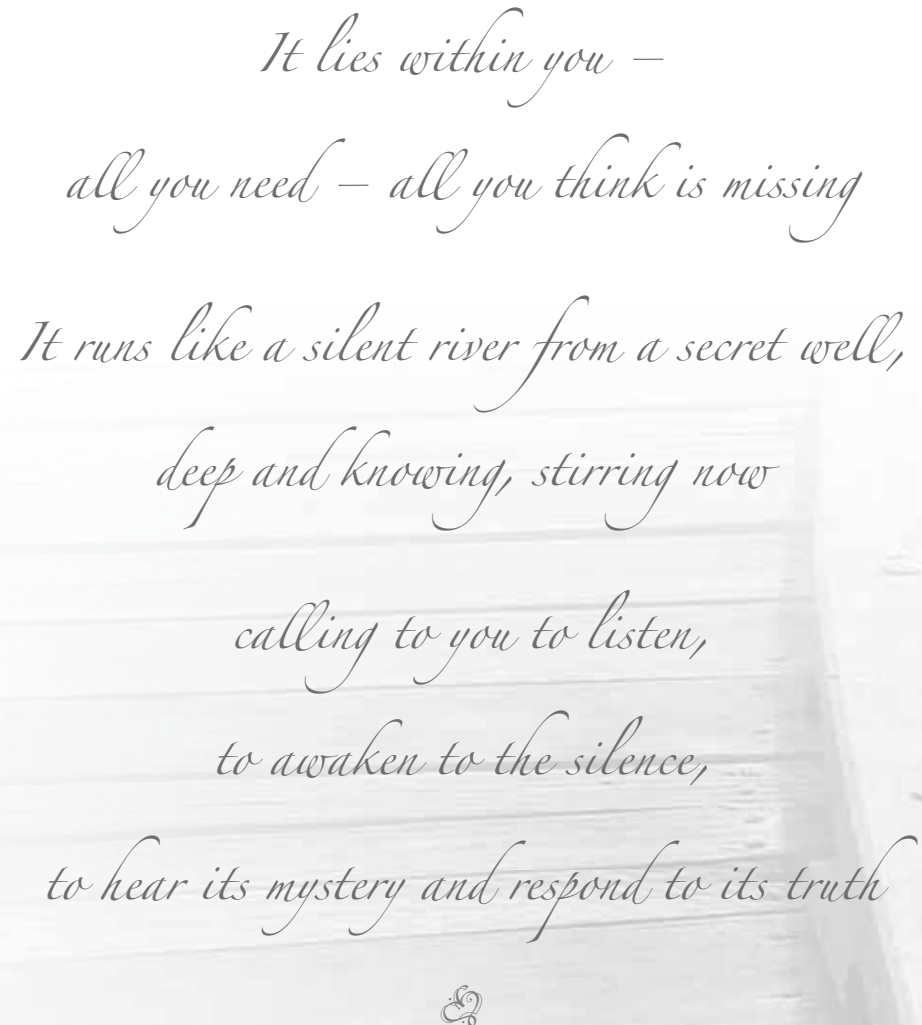 It lies within you –
all you need – all you think is missing
It runs like a silent river from a secret well,
deep and knowing, stirring now
calling to you to listen,
to awaken to the silence,
to hear its mystery and respond to its truth